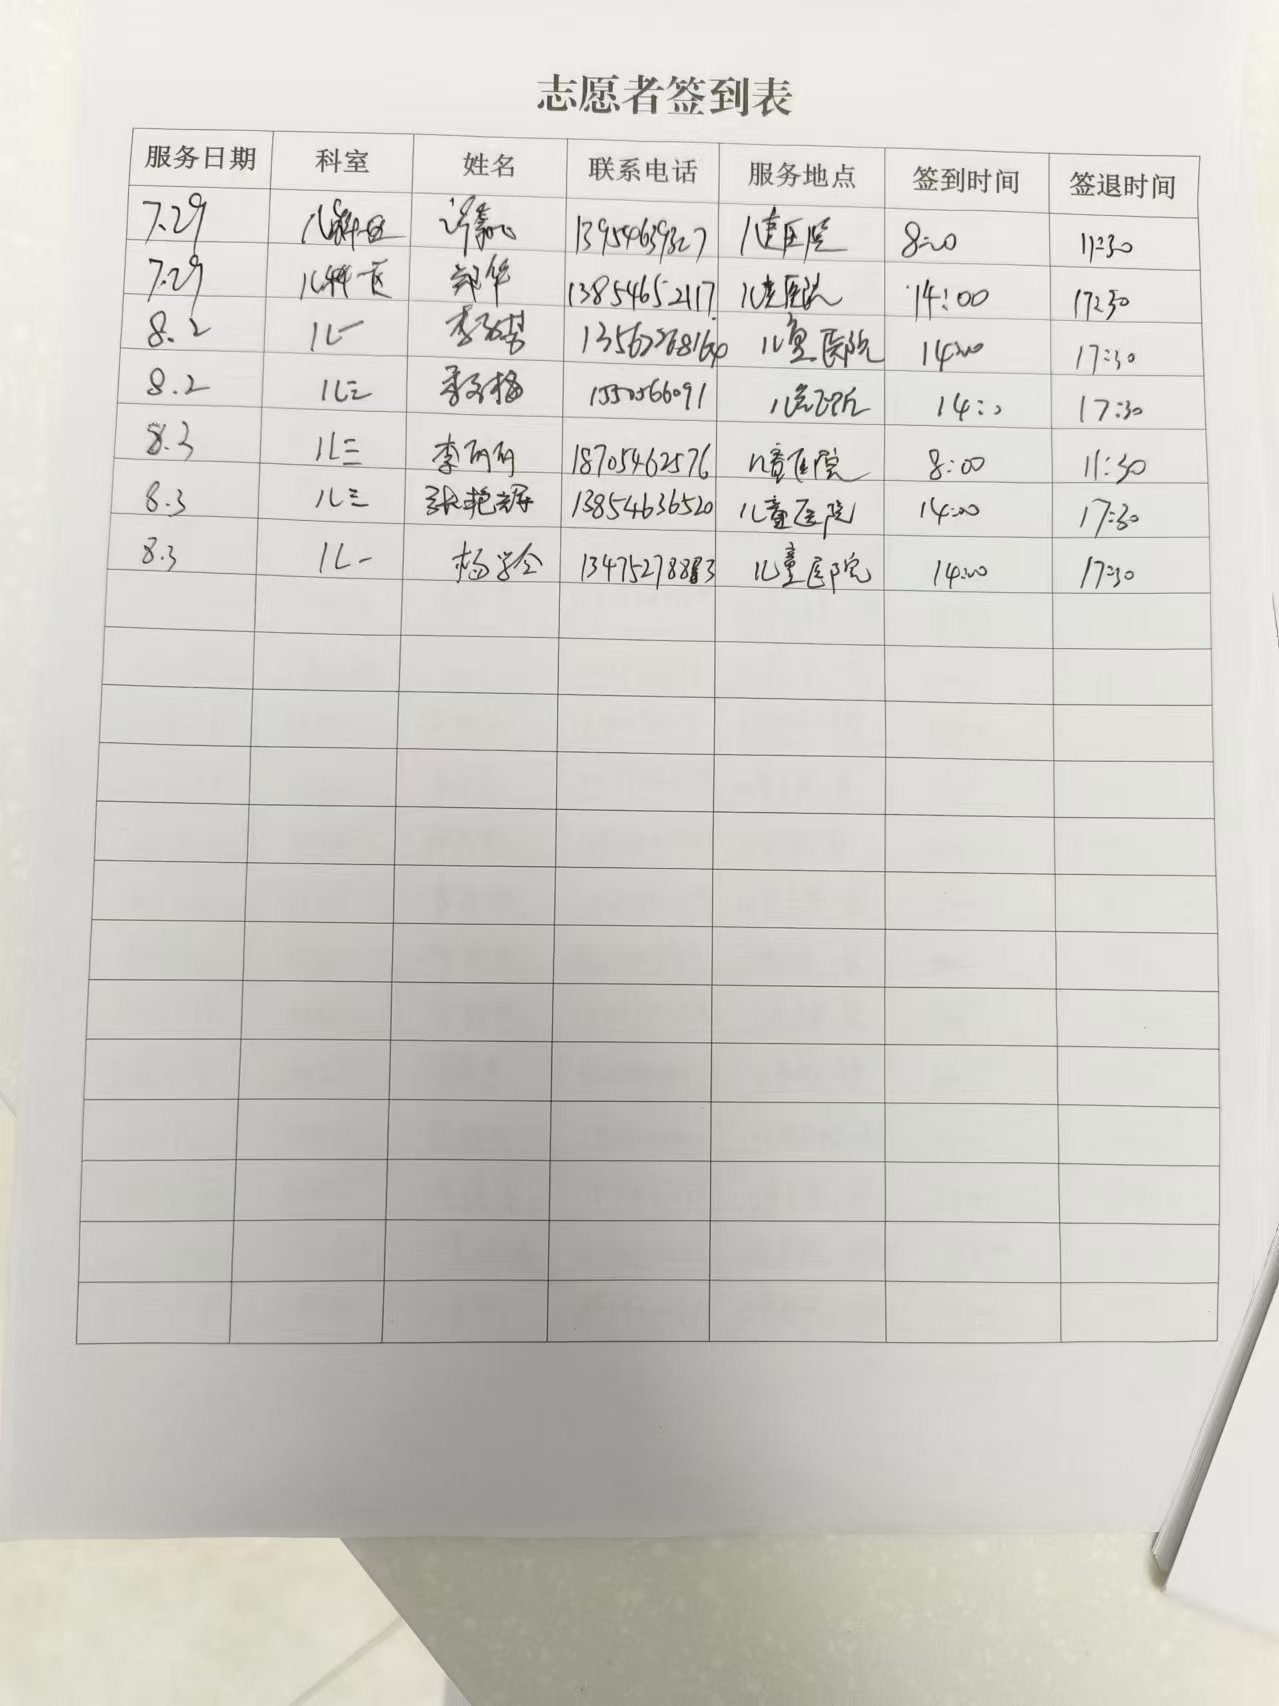 志愿者签到表
服务日期 科室 姓名 联系电话 服务地点 签到时间 签退时间
7.29 儿科一区 13954639327 儿童医院 8:00 11:30
7.29 儿科一区 郑华 13854652117 儿童医院 14:00 17:30
8.2 儿一 儿童医院 14:00 17:30
8.2 儿三 1550566091 14:00 17:30
8.3 儿三 李丽丽 18705462576 儿童医院 8:00 11:30
8.3 儿三 张艳辉 13854636520 儿童医院 14:00 17:30
8.3 儿一 杨学会 13475278883 儿童医院 14:00 17:30